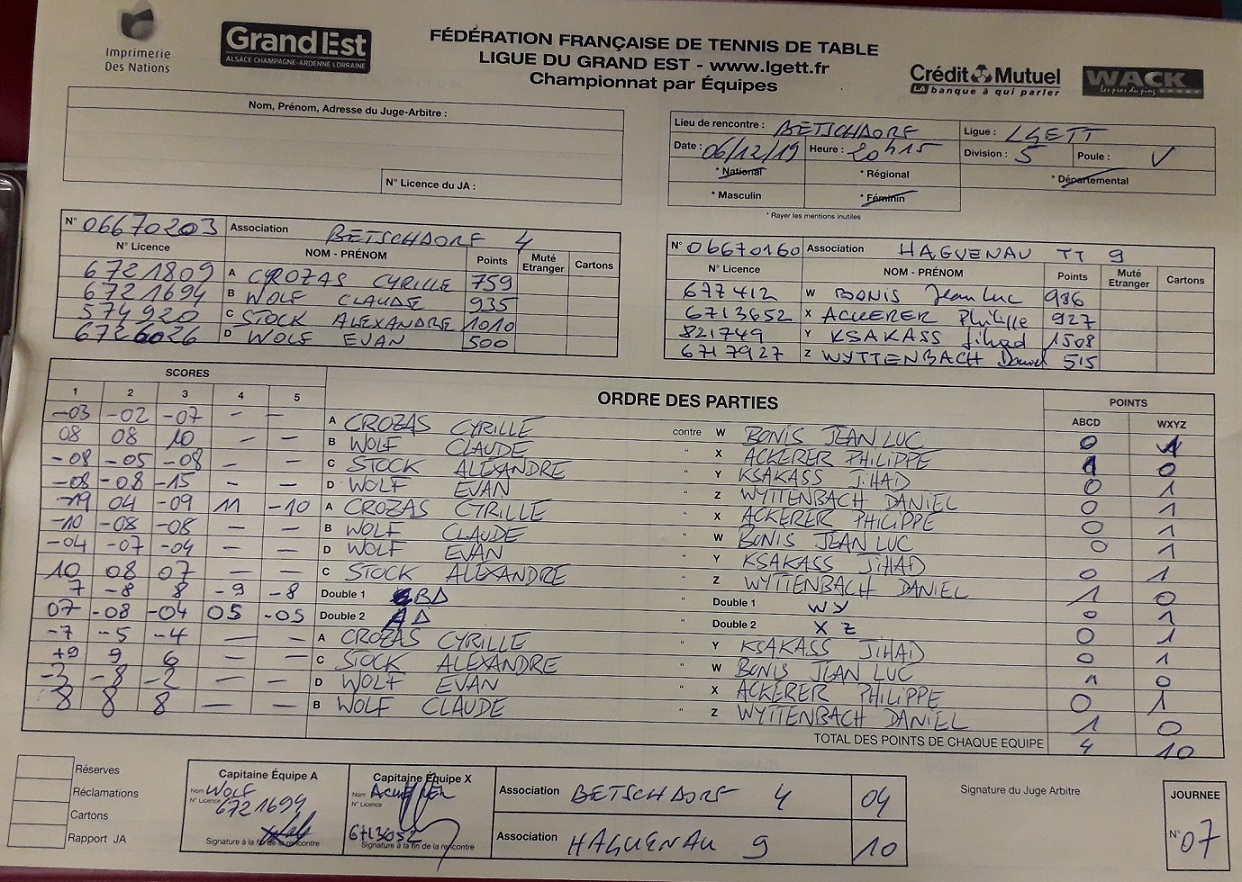 Imprimerie
Des Nations
GrandEst
ALSACE CHAMPAGNE-ARDENNE LORRAINE
FÉDÉRATION FRANÇAISE DE TENNIS DE TABLE
LIGUE DU GRAND EST - www.lgett.fr
Championnat par Équipes
Crédit Mutuel
LA banque à qui parler
WACK
les pros du ping
Nom, Prénom, Adresse du Juge-Arbitre :
N° Licence du JA :
Lieu de rencontre : BETSCHDORF Ligue : LGETT
Date : 06/12/19 Heure : 20h15 Division : 5 Poule : V
* National * Régional * Départemental
* Masculin * Féminin
* Rayer les mentions inutiles
N° 06670203 Association BETSCHDORF 4
N° Licence NOM - PRÉNOM Points Muté Etranger Cartons
6721809 A CROZAS CYRILLE 759
6721694 B WOLF CLAUDE 935
574920 C STOCK ALEXANDRE 1010
6726026 D WOLF EVAN 500
N° 06670160 Association HAGUENAU TT 9
N° Licence NOM - PRÉNOM Points Muté Etranger Cartons
677412 W BONIS Jean Luc 936
6713652 X ACKERER Philippe 927
821749 Y KSAKASS Jihad 1508
6717927 Z WYTTENBACH Daniel 515
SCORES ORDRE DES PARTIES POINTS
1 2 3 4 5 ABCD WXYZ
-03 -02 -07 - - A CROZAS CYRILLE contre W BONIS JEAN LUC 0 1
08 08 10 - - B WOLF CLAUDE " X ACKERER PHILIPPE 1 0
-08 -05 -08 - - C STOCK ALEXANDRE " Y KSAKASS JIHAD 0 1
-08 -08 -15 - - D WOLF EVAN " Z WYTTENBACH DANIEL 0 1
-19 04 -09 11 -10 A CROZAS CYRILLE " X ACKERER PHILIPPE 0 1
-10 -08 -08 - - B WOLF CLAUDE " W BONIS JEAN LUC 0 1
-04 -07 -04 - - D WOLF EVAN " Y KSAKASS JIHAD 0 1
10 08 07 - - C STOCK ALEXANDRE " Z WYTTENBACH DANIEL 1 0
7 -8 8 -9 -8 Double 1 BD " Double 1 WY 0 1
07 -08 -04 05 -05 Double 2 A D " Double 2 X Z 0 1
-7 -5 -4 - - A CROZAS CYRILLE " Y KSAKASS JIHAD 0 1
+9 9 6 - - C STOCK ALEXANDRE " W BONIS JEAN LUC 1 0
-3 -8 -2 - - D WOLF EVAN " X ACKERER PHILIPPE 0 1
8 8 8 - - B WOLF CLAUDE " Z WYTTENBACH DANIEL 1 0
TOTAL DES POINTS DE CHAQUE EQUIPE 4 10
Réserves
Réclamations
Cartons
Rapport JA
Capitaine Équipe A
Nom WOLF
N° Licence 6721694
Signature à la fin de la rencontre
Capitaine Équipe X
Nom
N° Licence
6713652
Signature à la fin de la rencontre
Association BETSCHDORF 4 04
Association HAGUENAU 9 10
Signature du Juge Arbitre
JOURNEE
N° 07